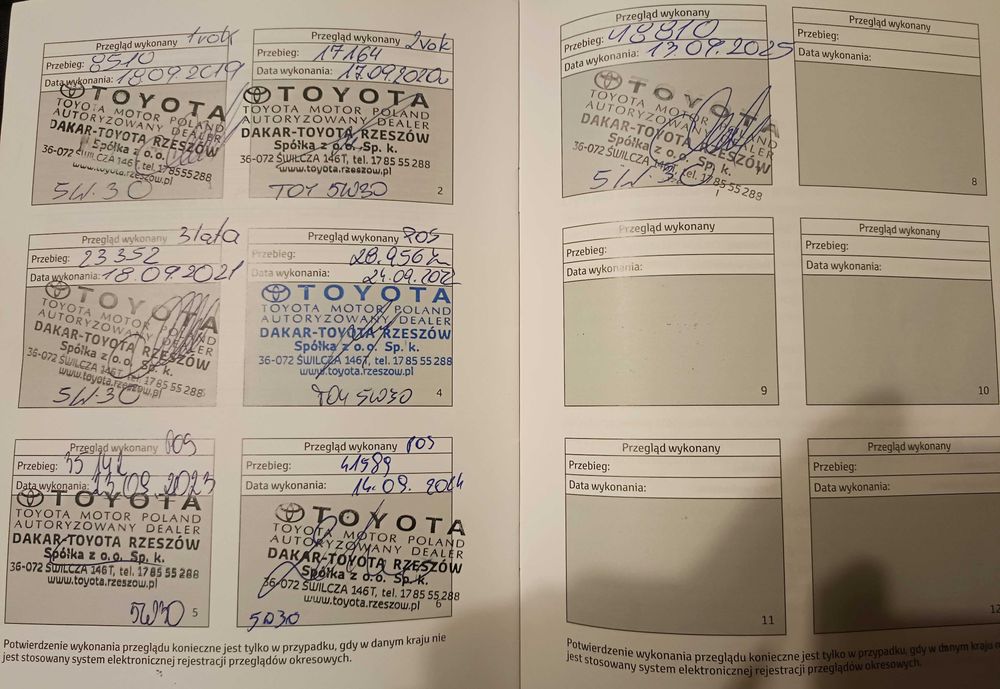 Przegląd wykonany 1 rok
Przebieg: 8510
Data wykonania: 18.09.2019
TOYOTA
TOYOTA MOTOR POLAND
AUTORYZOWANY DEALER
DAKAR-TOYOTA RZESZÓW
Spółka z o.o. Sp. k.
36-072 ŚWILCZA 146T, tel. 17 85 55 288
www.toyota.rzeszow.pl
5W-30
Przegląd wykonany 2 rok
Przebieg: 17164
Data wykonania: 17.09.2020
TOYOTA
TOYOTA MOTOR POLAND
AUTORYZOWANY DEALER
DAKAR-TOYOTA RZESZÓW
Spółka z o.o. Sp. k.
36-072 ŚWILCZA 146T, tel. 17 85 55 288
www.toyota.rzeszow.pl
TOY 5W30
2
Przegląd wykonany 3 lata
Przebieg: 23352
Data wykonania: 18.09.2021
TOYOTA
TOYOTA MOTOR POLAND
AUTORYZOWANY DEALER
DAKAR-TOYOTA RZESZÓW
Spółka z o.o. Sp. k.
36-072 ŚWILCZA 146T, tel. 17 85 55 288
www.toyota.rzeszow.pl
5W-30
Przegląd wykonany POS
Przebieg: 28.956
Data wykonania: 24.09.2022
TOYOTA
TOYOTA MOTOR POLAND
AUTORYZOWANY DEALER
DAKAR-TOYOTA RZESZÓW
Spółka z o.o. Sp. k.
36-072 ŚWILCZA 146T, tel. 17 85 55 288
www.toyota.rzeszow.pl
TOY 5W30
4
Przegląd wykonany POS
Przebieg: 35142
Data wykonania: 13.09.2023
TOYOTA
TOYOTA MOTOR POLAND
AUTORYZOWANY DEALER
DAKAR-TOYOTA RZESZÓW
Spółka z o.o. Sp. k.
36-072 ŚWILCZA 146T, tel. 17 85 55 288
www.toyota.rzeszow.pl
5W30
5
Przegląd wykonany POS
Przebieg: 41989
Data wykonania: 14.09.2024
TOYOTA
TOYOTA MOTOR POLAND
AUTORYZOWANY DEALER
DAKAR-TOYOTA RZESZÓW
Spółka z o.o. Sp. k.
36-072 ŚWILCZA 146T, tel. 17 85 55 288
www.toyota.rzeszow.pl
5W30
6
Potwierdzenie wykonania przeglądu konieczne jest tylko w przypadku, gdy w danym kraju nie
jest stosowany system elektronicznej rejestracji przeglądów okresowych.
Przegląd wykonany
Przebieg: 48810
Data wykonania: 13.09.2025
TOYOTA
TOYOTA MOTOR POLAND
AUTORYZOWANY DEALER
DAKAR-TOYOTA RZESZÓW
Spółka z o.o. Sp. k.
36-072 ŚWILCZA 146T, tel. 17 85 55 288
www.toyota.rzeszow.pl
5W-30
Przegląd wykonany
Przebieg:
Data wykonania:
8
Przegląd wykonany
Przebieg:
Data wykonania:
9
Przegląd wykonany
Przebieg:
Data wykonania:
10
Przegląd wykonany
Przebieg:
Data wykonania:
11
Przegląd wykonany
Przebieg:
Data wykonania:
12
Potwierdzenie wykonania przeglądu konieczne jest tylko w przypadku, gdy w danym kraju
jest stosowany system elektronicznej rejestracji przeglądów okresowych.